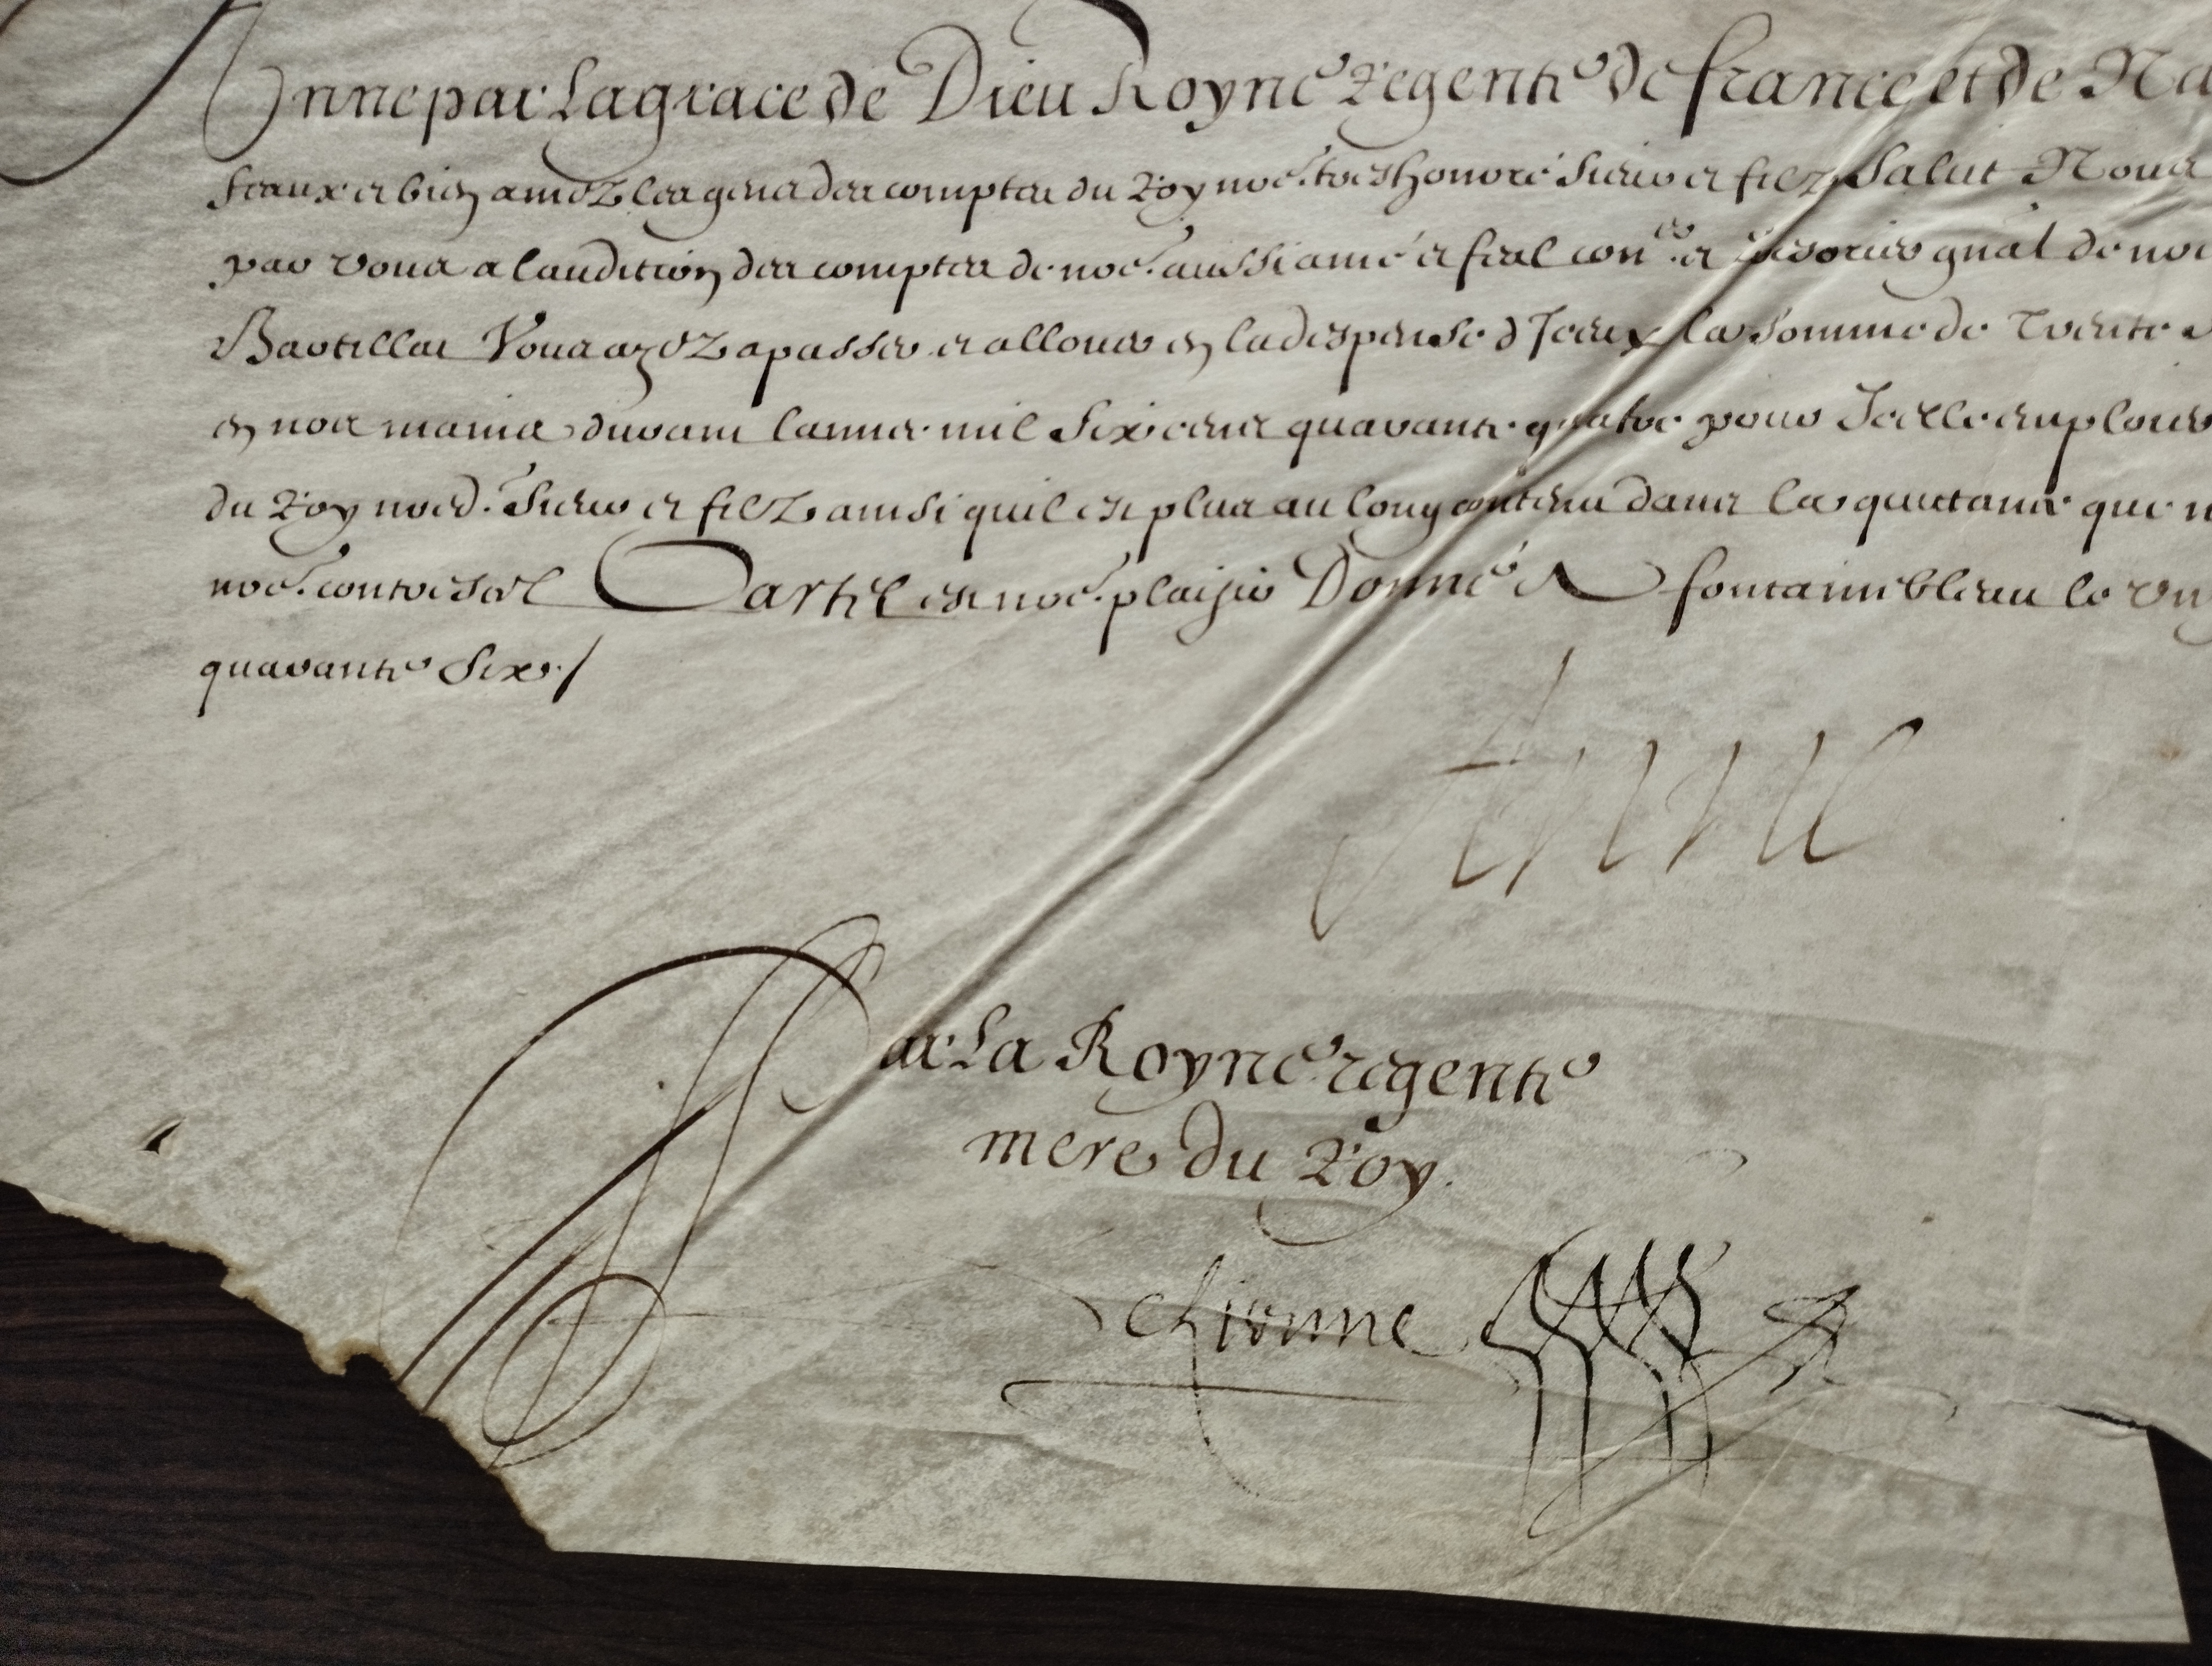 Anne par La grace de Dieu Royne Regente de france et de Na
feaux et bien amez les gens des comptes du Roy noe. tres honoré sieur et filz Salut Nous
par vous a laudition des comptes de noe. aussi amé et feal coner. et Tresorier gnal de noe
Bartillat Vous ayez a passer et allouer en la despense d Iceux la somme de Trente
en nos mains durant lannee mil six cens quarante quatre pour Icelle emploier
du Roy noed. sieur et filz ainsi quil est plus au long contenu dans la quictance que n
noe. contreseel Car tel est noe. plaisir Donné A fontainebleau le
quarante six /
Anne
Par La Royne regente
mere du Roy.